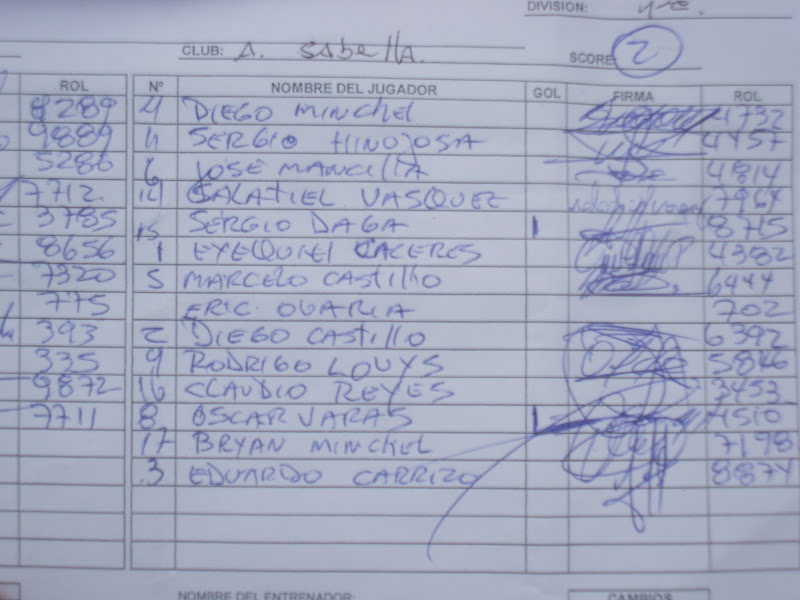 DIVISION: 1ra.
CLUB: A. SABELLA.
SCORE: 2
ROL Nº NOMBRE DEL JUGADOR GOL FIRMA ROL
8289 4 DIEGO MINCHEL 4732
9889 SERGIO HINOJOSA 4457
5286 6 JOSE MANCILLA 4814
7712 14 GALATIEL VASQUEZ 7964
3785 15 SERGIO DAGA 1 8715
8656 1 EXEQUIEL CACERES 4382
7320 5 MARCELO CASTILLO 6444
775 ERIC OVARIA 702
393 2 DIEGO CASTILLO 6392
335 9 RODRIGO LOUYS 5846
9872 16 CLAUDIO REYES 3453
7711 8 OSCAR VARAS 1 4510
17 BRYAN MINCHEL 7198
3 EDUARDO CARRIZO 8874
NOMBRE DEL ENTRENADOR: CAMBIOS